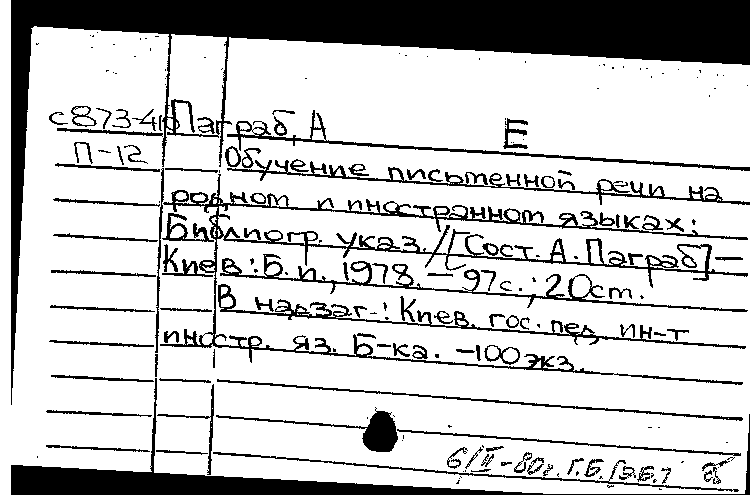 с873-410 Паграб, А Е
П-12 Обучение письменной речи на
родном и иностранном языках:
Библиогр. указ. /[Сост. А. Паграб].—
Киев: Б. и., 1978. — 97с.; 20ст.
В надзаг.: Киев. гос. пед. ин-т
иностр. яз. Б-ка. -100 экз.
6/II-80г. Г.Б.